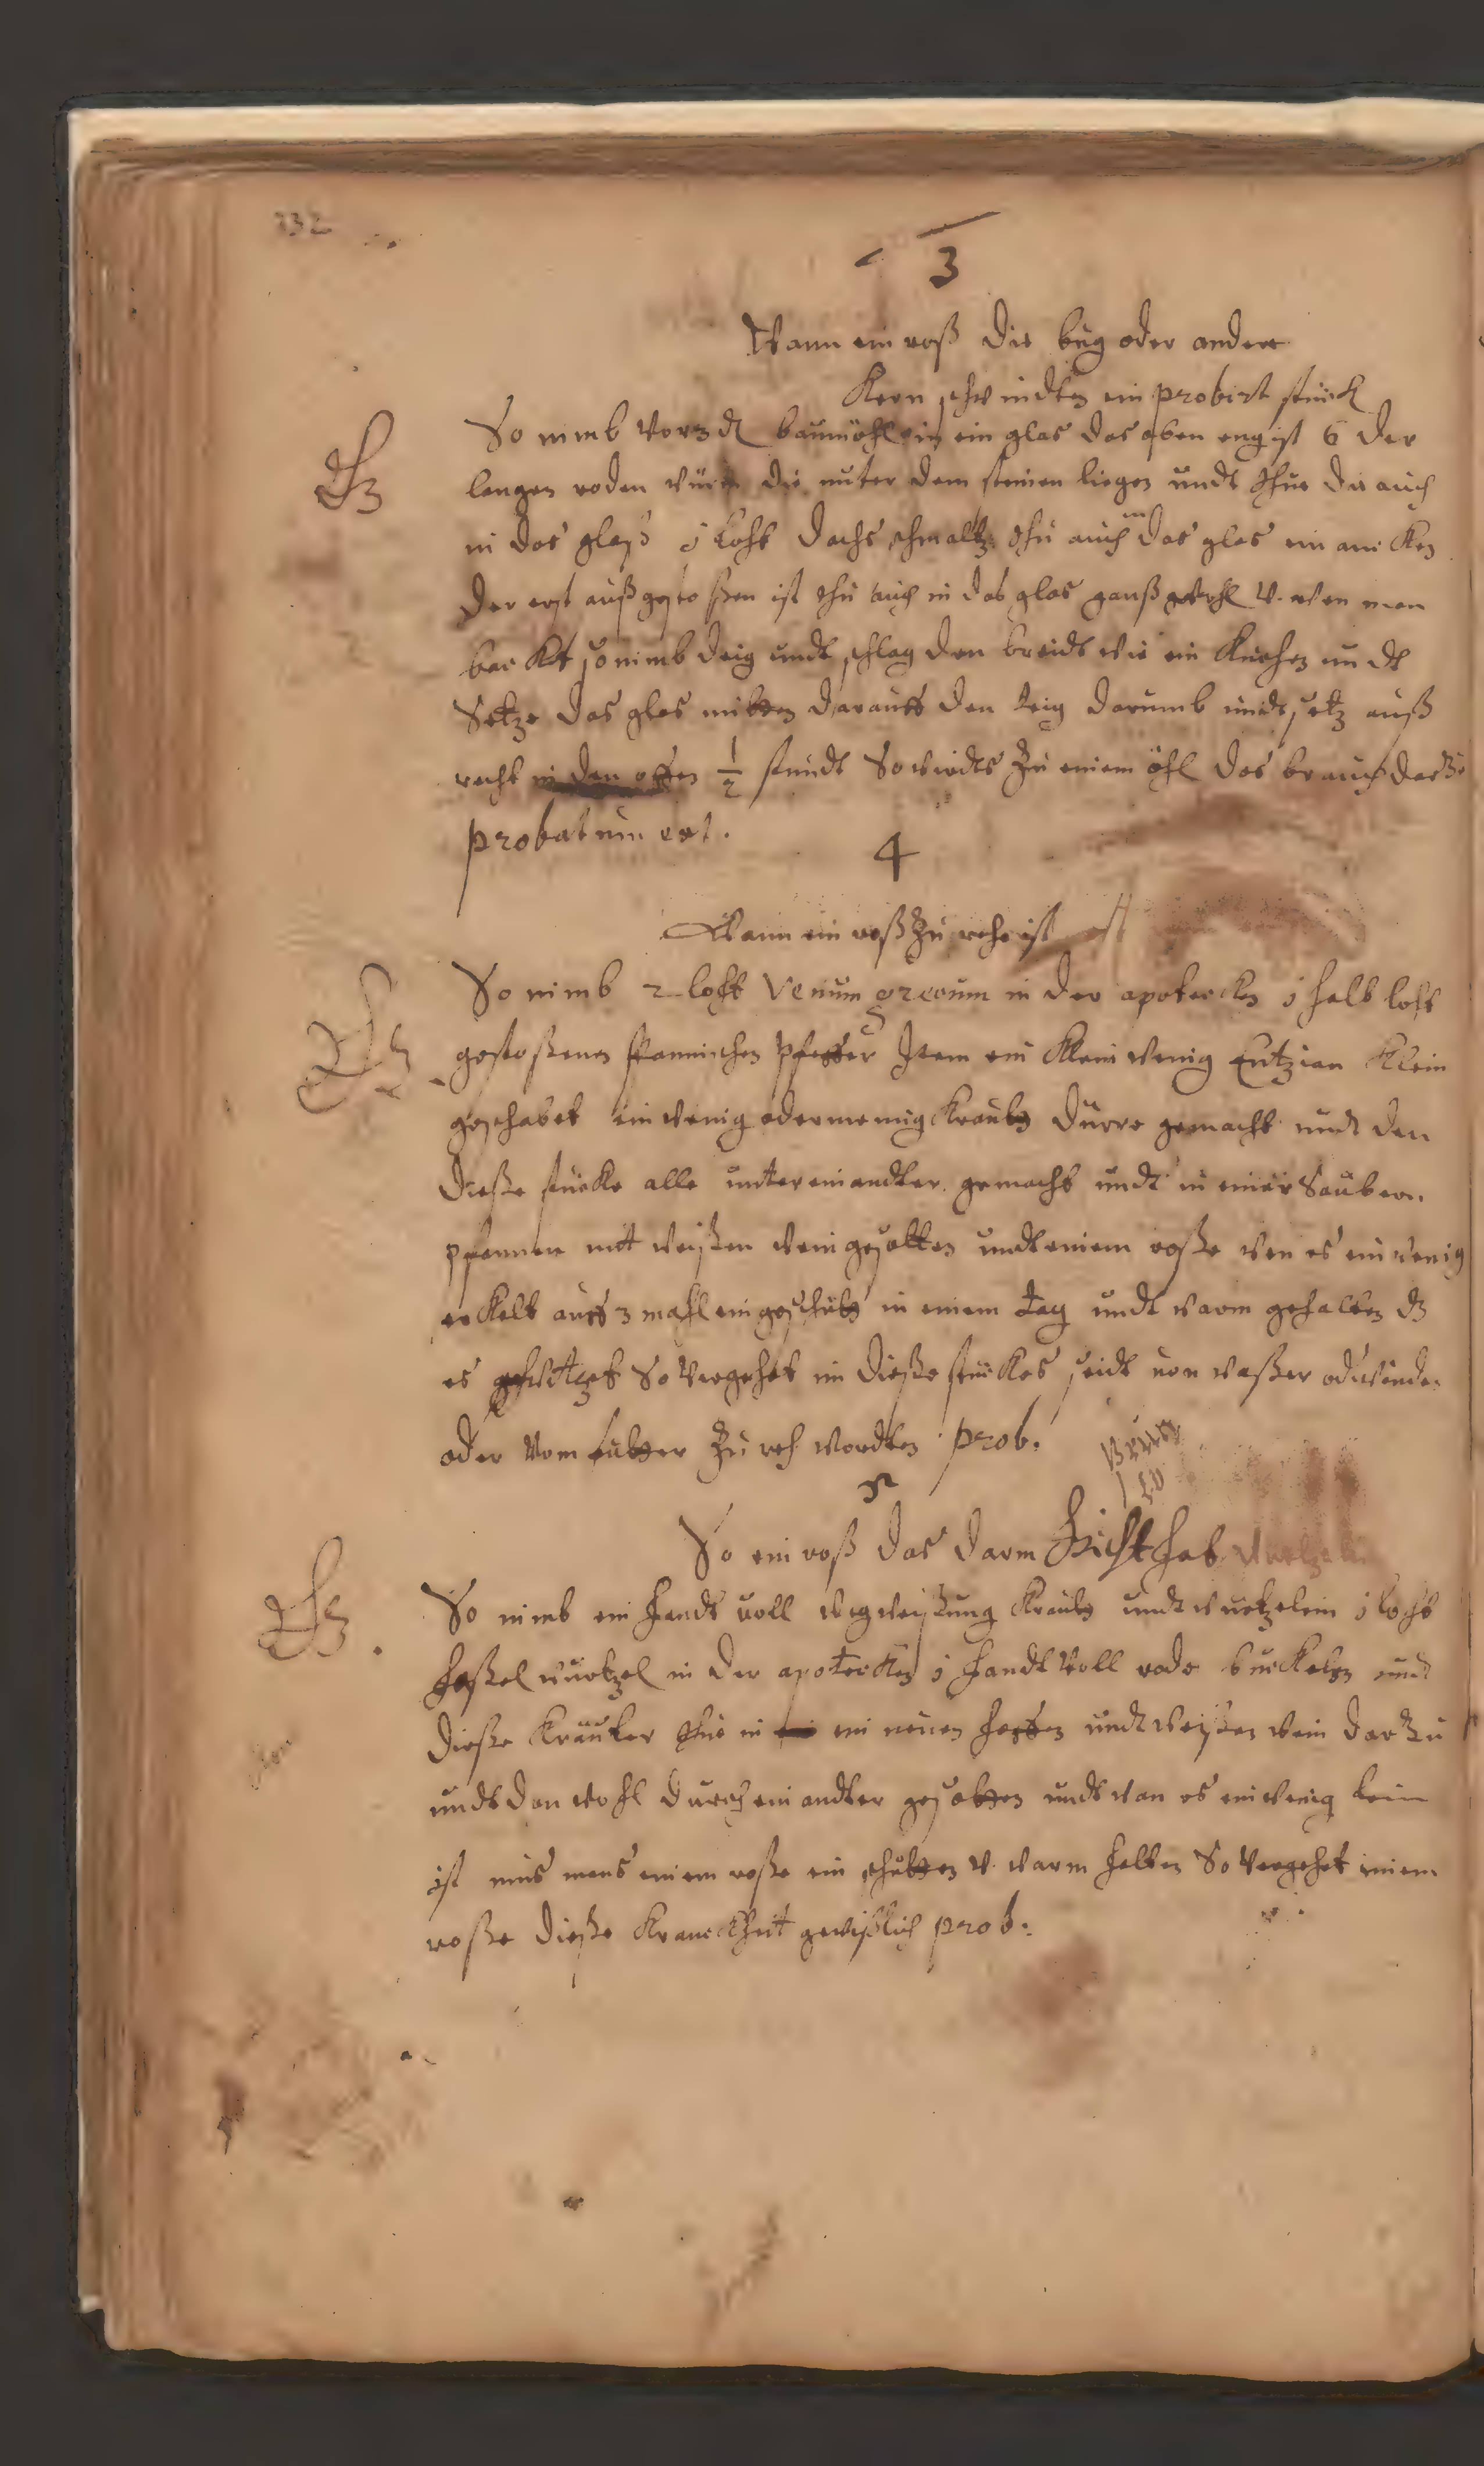 232
3
Wann ein roß die bug oder andere
Kern schwindten ein probirt stück
So nimb vor 3 ₰ baumöhl in ein glas das oben eng ist 6 der
langen roden würm die unter dem steinen liegen undt thue die auch
in das glaß j Loht dachs schmaltz thu auch in das glas
der erst außgestoßen ist thu auch in das glas wohl v. wen man
backt so nimb deig undt schlag den breidt wie ein Kuchen undt
Setze das glas mitten darauff den teig darumb undt setz auß
recht in den offen ½ stundt So wirdts zu einem öhl das brauch darzu
probatum est.
4
Wann ein roß zu rehe ist
So nimb 2 loht Venum grecum in der apotecken j halb loht
gestoßenen spannischen pfeffer Item ein klein wenig Entzian klein
geschabet ein wenig odermennig Krautt dürre gemacht undt den
dieße stücke alle untereinandter gemacht undt in einer Saubern
pfannen mit weißen wein gesotten undt einem roße wen es ein wenig
erkalt auff 3 mahl eingeschütt in einem tag undt warm gehalten dz
es So vergehet im dieße stückes seidt von waßer oder winde
oder vom futter zu reh wordten prob.
5
So ein roß das darm gicht hat
So nimb ein handt voll wegweißung Krautt undt wurtzelein j loht
haßelwurtzel in der apotecken j handt voll rode buckelen undt
dieße Kräuter thue in ein neuen haffen undt weißen wein darzu
undt den wohl durch einandter gesotten undt wan es ein wenig
ist mus mans einem roße ein schütten v. warm halten So vergehet einem
roße dieße Kranckheit gewißlich prob: